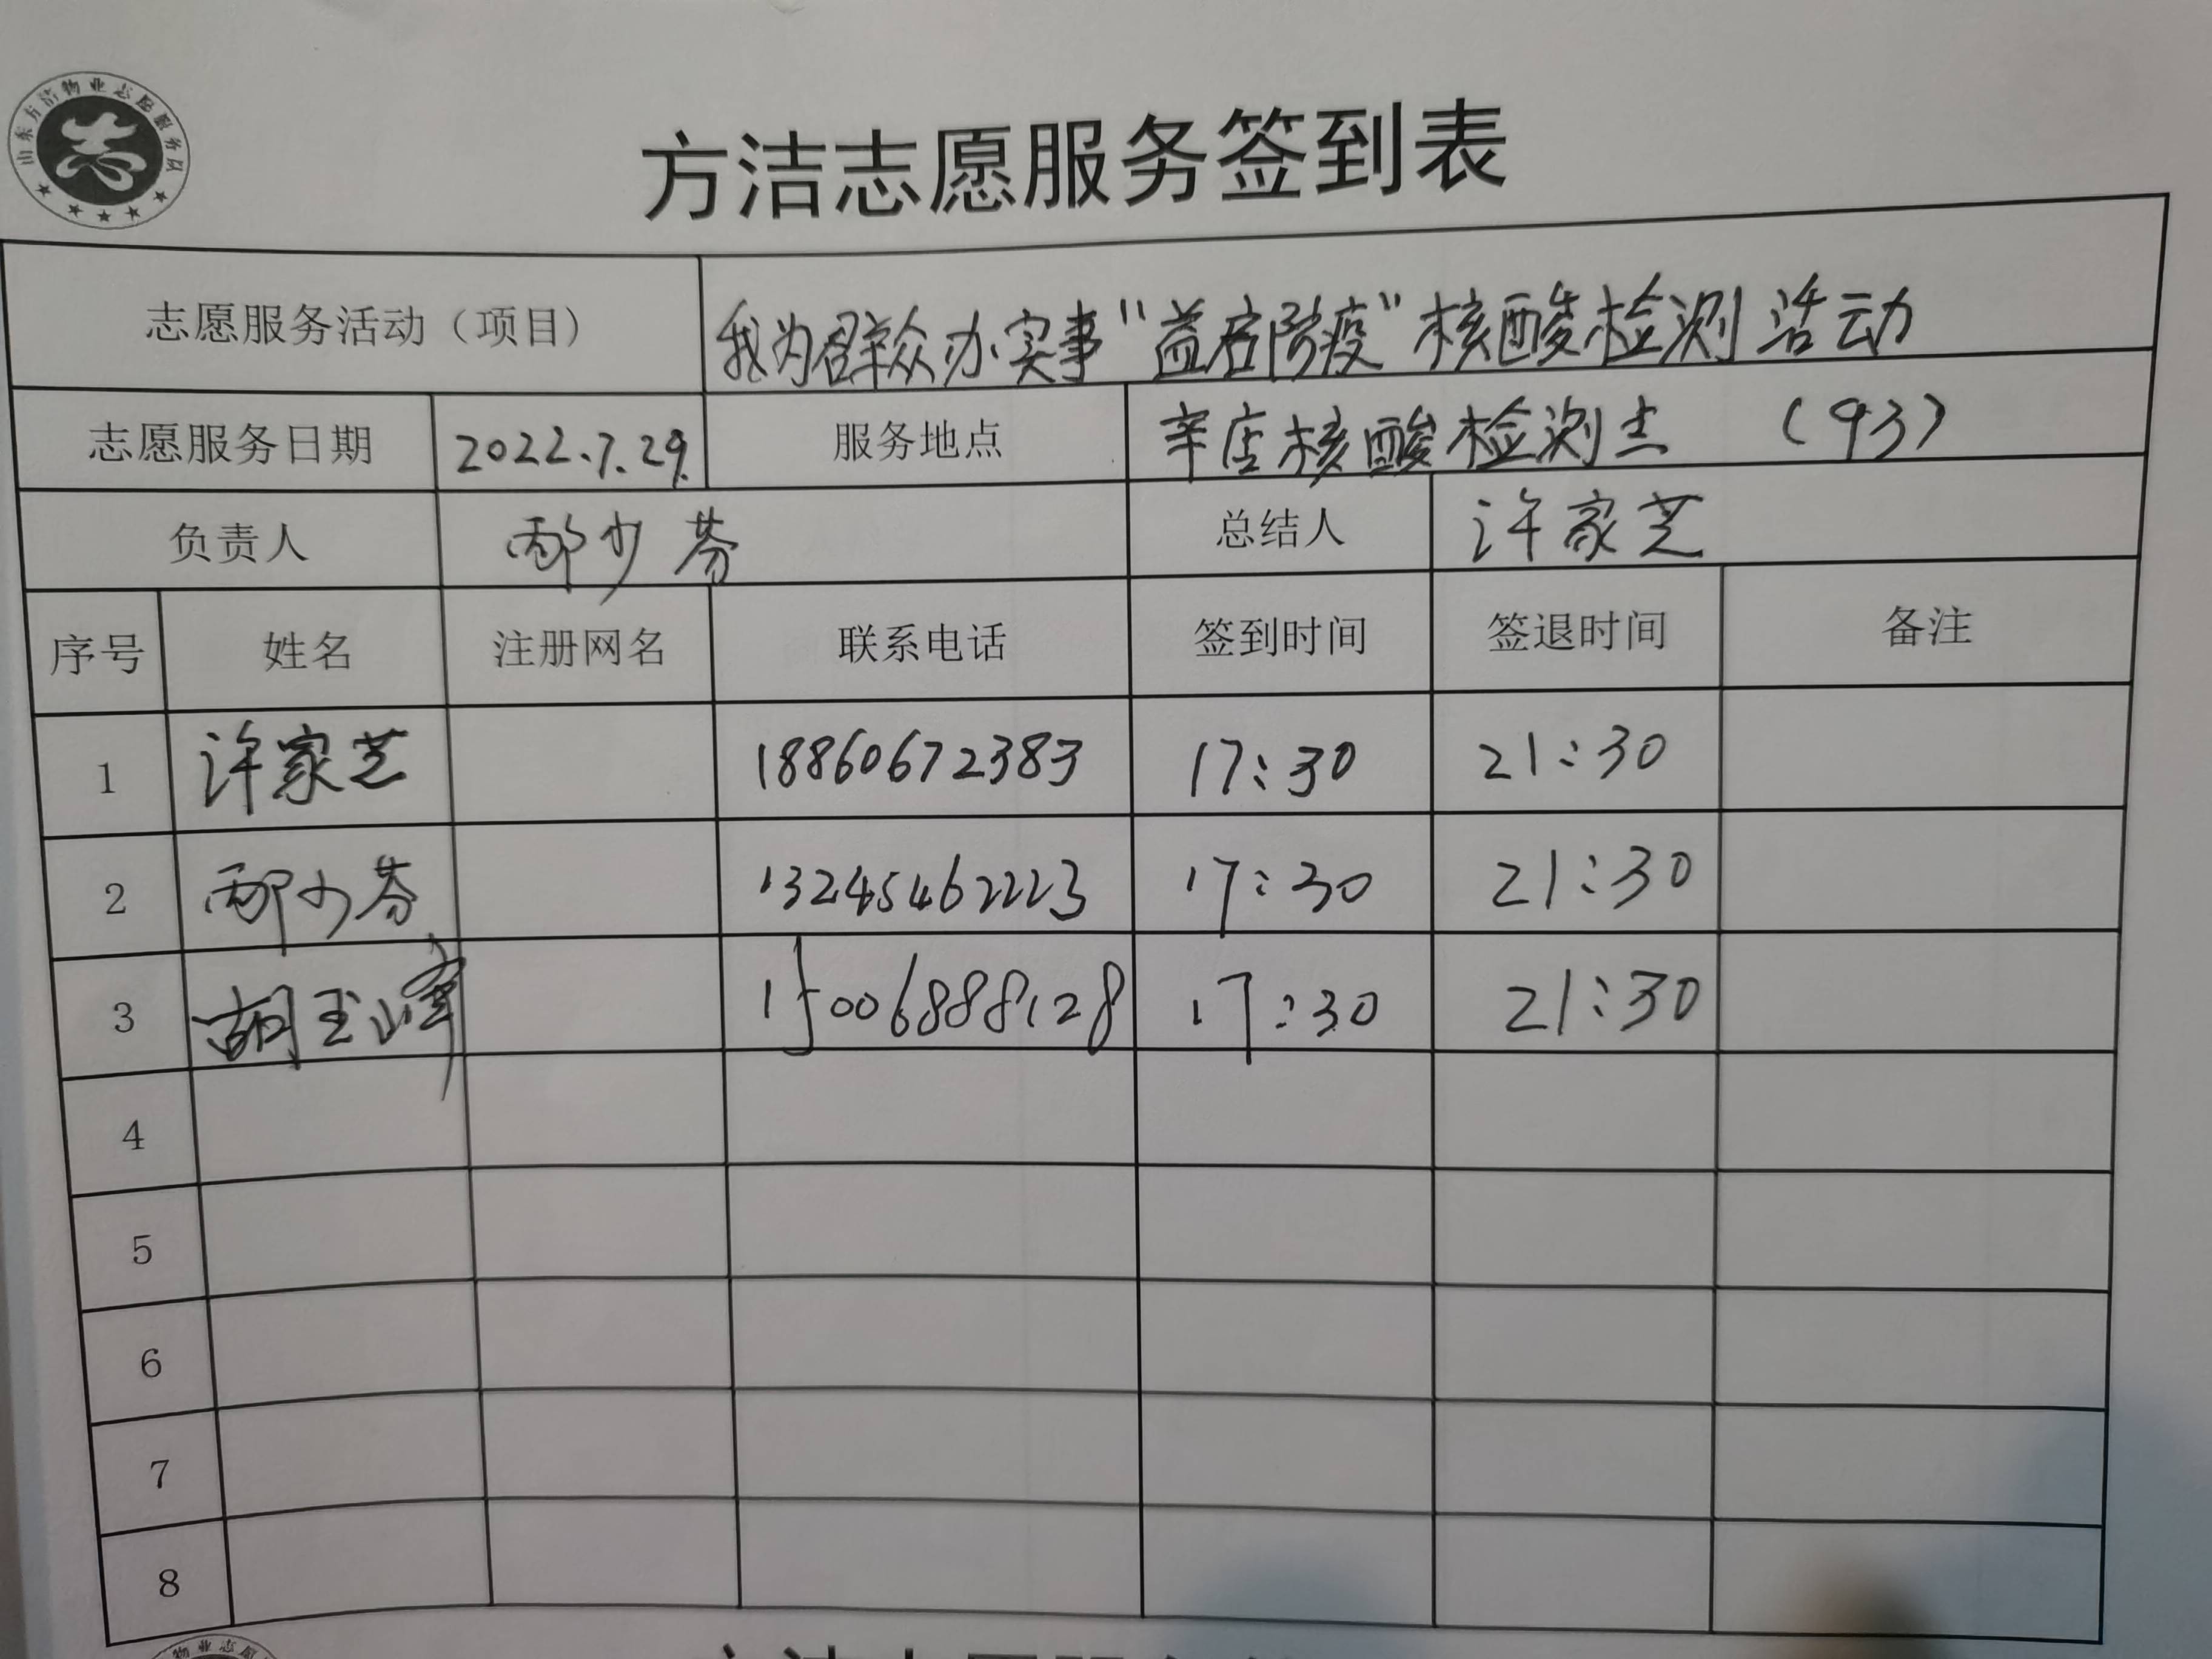 山东方洁物业志愿服务队
方洁志愿服务签到表
志愿服务活动（项目） 我为群众办实事"益启防疫"核酸检测活动
志愿服务日期 2022.7.29. 服务地点 辛店核酸检测点 （93）
负责人 邴少芬 总结人 许家芝
序号 姓名 注册网名 联系电话 签到时间 签退时间 备注
1 许家芝 18860672383 17:30 21:30
2 邴少芬 13245462223 17:30 21:30
3 胡玉峰 15006888128 17:30 21:30
4
5
6
7
8
物业志愿